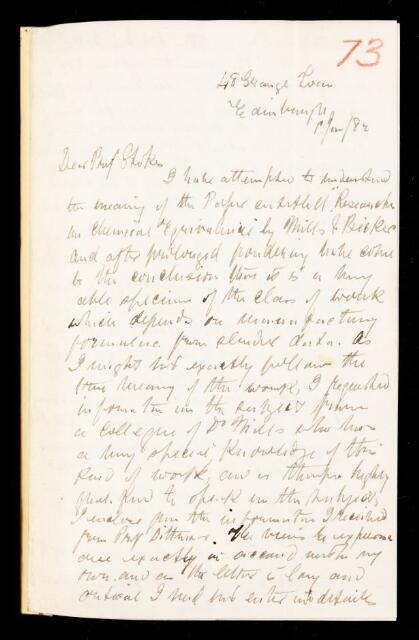 73
48 Grange Loan
Edinburgh
Jan/82
Dear Prof Stokes
I have attempted to understand
the meaning of the Paper entitled "Researches
on Chemical Equivalence by Mills &
and after prolonged pondering have come
to the conclusion that it is a very
able specimen of the class of work
which depends on manufacturing
formulae from slender data. As
I might not exactly follow the
true meaning of the work, I requested
information on the subject from
a colleague of Dr Mills who has
a very special knowledge of this
kind of work, and is therefore highly
qualified to speak on the subject,
I enclose you the information I received
from Prof Dittmar. The views he expresses
are exactly in accord with my
own, and as the letter is long and
critical I need not enter into details